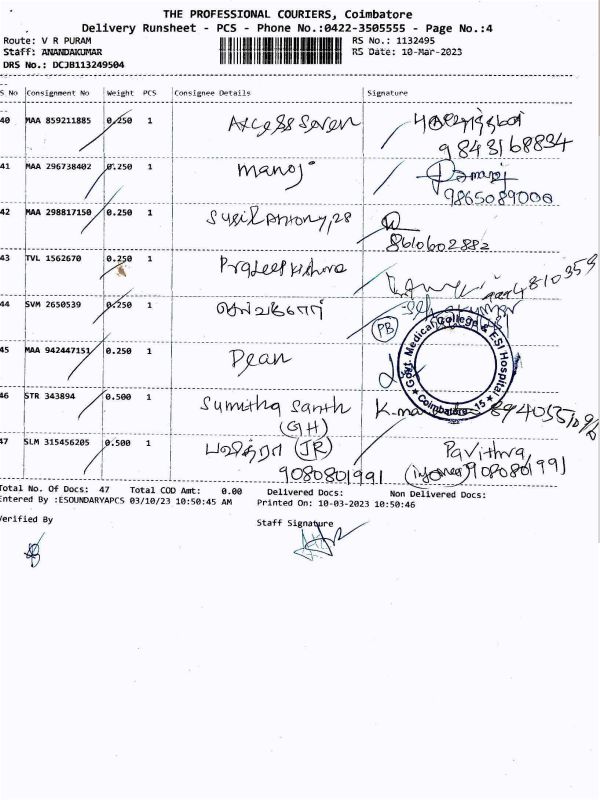 THE PROFESSIONAL COURIERS, Coimbatore
Delivery Runsheet - PCS - Phone No.:0422-3505555 - Page No.:4
Route: V R PURAM RS No.: 1132495
Staff: ANANDAKUMAR RS Date: 10-Mar-2023
DRS No.: DCJB113249504
S No Consignment No Weight PCS Consignee Details Signature
40 MAA 859211885 0.250 1 Axcess Seven
9843168834
41 MAA 296738402 0.250 1 manoj manoj
9865089000
42 MAA 298817150 0.250 1 Susil Antony, 28
8610602882
43 TVL 1562670 0.250 1 Pradeep Kishore
44 SVM 2650539 0.250 1 செல்வகுமார் Selvakumar
PB
45 MAA 942447151 0.250 1 Dean
Govt. Medical College & ESI Hospital
Coimbatore - 15
46 STR 343894 0.500 1 Sumitha Santh
(GH)
47 SLM 315456205 0.500 1 பவித்ரா (JR) Pavithra
9080801991 9080801991
Total No. Of Docs: 47 Total COD Amt: 0.00 Delivered Docs: Non Delivered Docs:
Entered By :ESOUNDARYAPCS 03/10/23 10:50:45 AM Printed On: 10-03-2023 10:50:46
Verified By Staff Signature